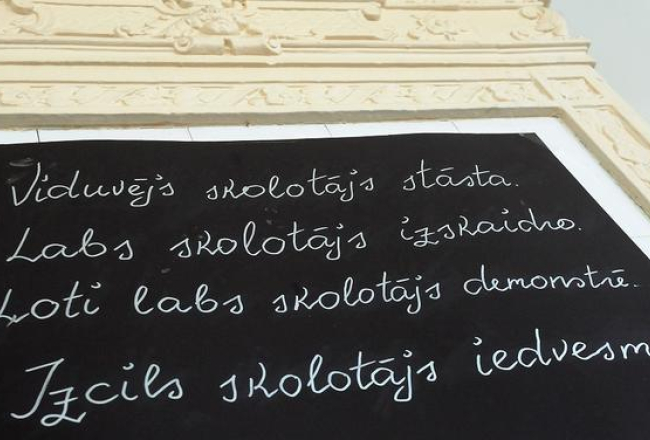 Viduvējs skolotājs stāsta.
Labs skolotājs izskaidro.
Ļoti labs skolotājs demonstrē.
Izcils skolotājs iedvesm